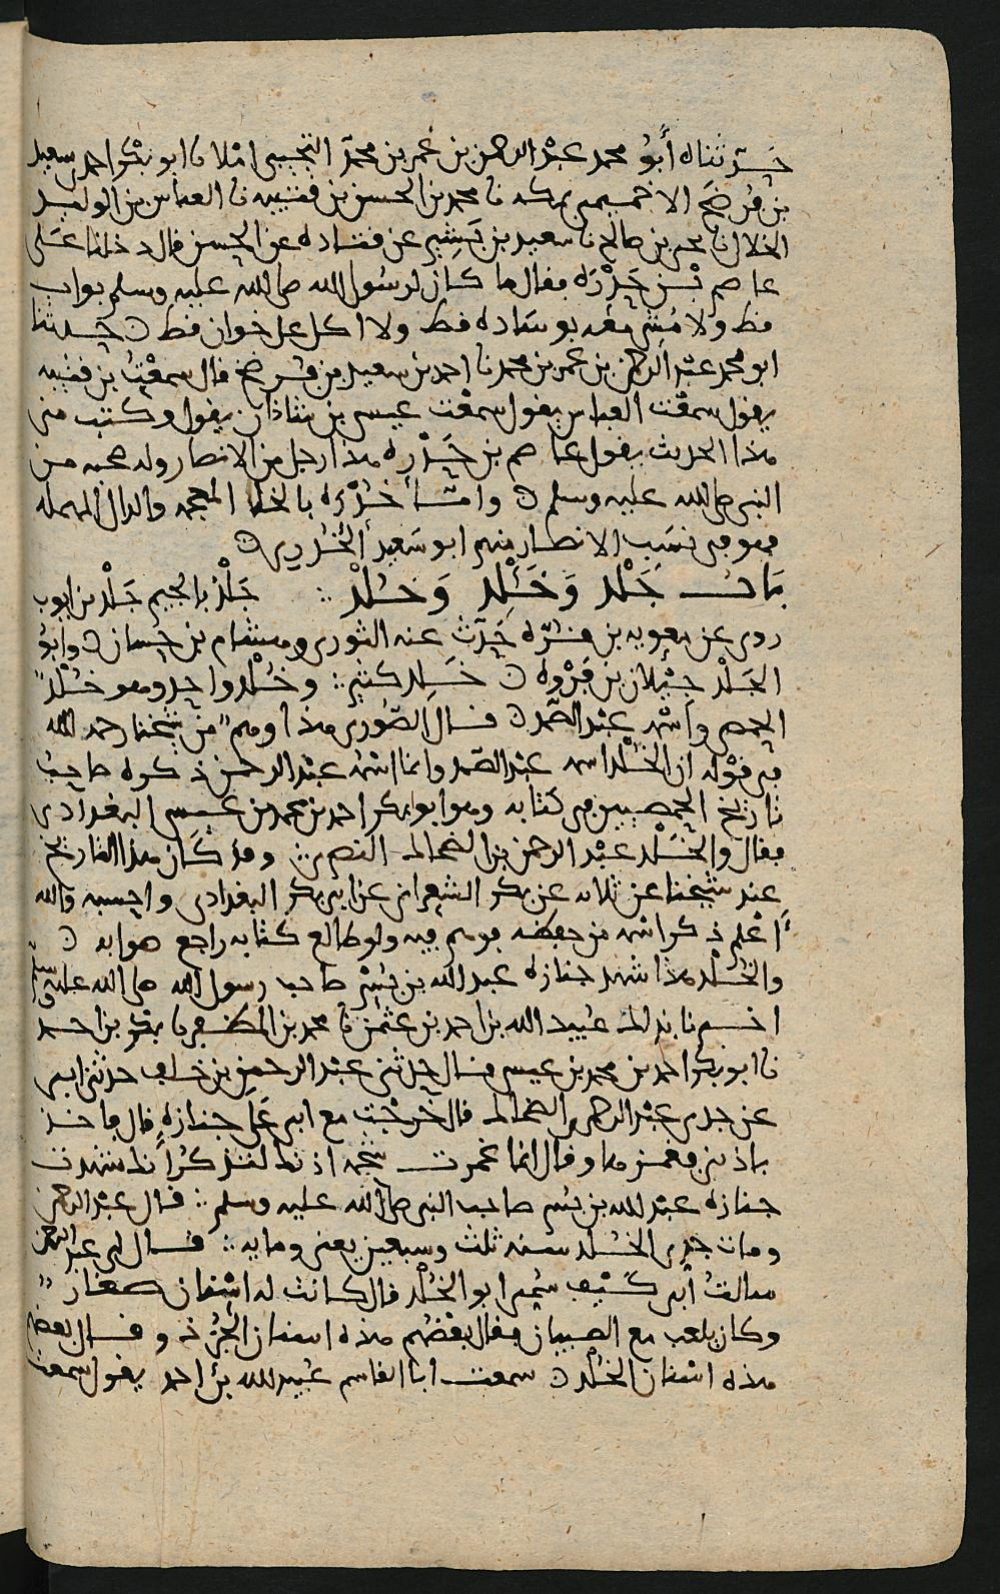 حدثناه أبو محمد عبد الرحمن بن عمر بن محمد التجيبي املا نا ابو بكر احمد بن سعيد
بن فرضخ الاخميمي بمكه نا محمد بن الحسن بن قتيبه نا العباس بن الوليد
الخلال نا يحيى بن صالح نا سعيد بن بشير عن قتاده عن الحسن قال دخلنا على
عاصم بن حدره فقال ما كان لرسول الله صلى الله عليه وسلم بواب
قط ولا مشي معه بوساده قط ولا اكل على خوان قط ٥ حدثنا
ابو محمد عبد الرحمن بن عمر بن محمد نا احمد بن سعيد بن فرضخ قال سمعت بن قتيبه
يقول سمعت العباس يقول سمعت عيسى بن شاذان يقول وكتب مني
هذا الحديث يقول عاصم بن حدره هذا رجل من الانصار وله صحبه من
النبي صلى الله عليه وسلم ٥ وامـا خدره بالخا المعجمه والدال المهمله
فهو في نسب الانصار منهم ابو سعيد الخدري ٥
باب جلد وخلد وخلد ∴ جلد بالجيم جلد بن ايوب
روى عن معويه بن قره حدث عنه الثوري وهشام بن حسان ٥ وابو
الجلد جيلان بن فروه ٥ خلد كثير ∴ وخلد واحد وهو خلد
الحمصي واسمه عبد الصمد ٥ قال الصوري هذا وهم من شيخنا رحمه الله
في قوله ان الخلد اسمه عبد الصمد وانما اسمه عبد الرحمن ذكره صاحب
تاريخ الحمصيين في كتابه وهو ابو بكر احمد بن محمد بن عيسى البغدادي
فقال والخلد عبد الرحمن بن الضحاك النصري ∴ وقد كان هذا التاريخ
عند شيخنا عن ثلاثه عن بكر الشعراني عن ابي بكر البغدادي واحسبه والله
أعلم ذكر اسمه من حفظه فوهم فيه ولو طالع كتابه راجع صوابه ٥
والخلد هذا شهد جنازه عبد الله بن بسر صاحب رسول الله صلى الله عليه وسلم
اخبرنا بذلك عبيد الله بن احمد بن عثمن نا محمد بن المظفر نا بكر بن احمد
نا ابو بكر احمد بن محمد بن عيسى قال حدثني عبد الرحمن بن خلف حدثني ابي
عن جدي عبد الرحمن بن الضحاك قال خرجت مع ابي على جنازه قال فاخذ
باذني فغمزها وقال انما غمزت شحمه اذنك لتذكر أنك شهدت
جنازه عبد الله بن بسر صاحب النبي صلى الله عليه وسلم ∴ قال عبد الرحمن
ومات جدي الخلد سنه ثلث وسبعين يعني ومايه ∴ قال لي عبد الرحمن
سالت أبي كيف سمي ابو الخلد قال كانت له اسنان صغار
وكان يلعب مع الصبيان فقال بعضهم هذه اسنان الجرذ وقال بعضهم
هذه اسنان الخلد ٥ سمعت ابا القاسم عبيد الله بن احمد يقول سمعت